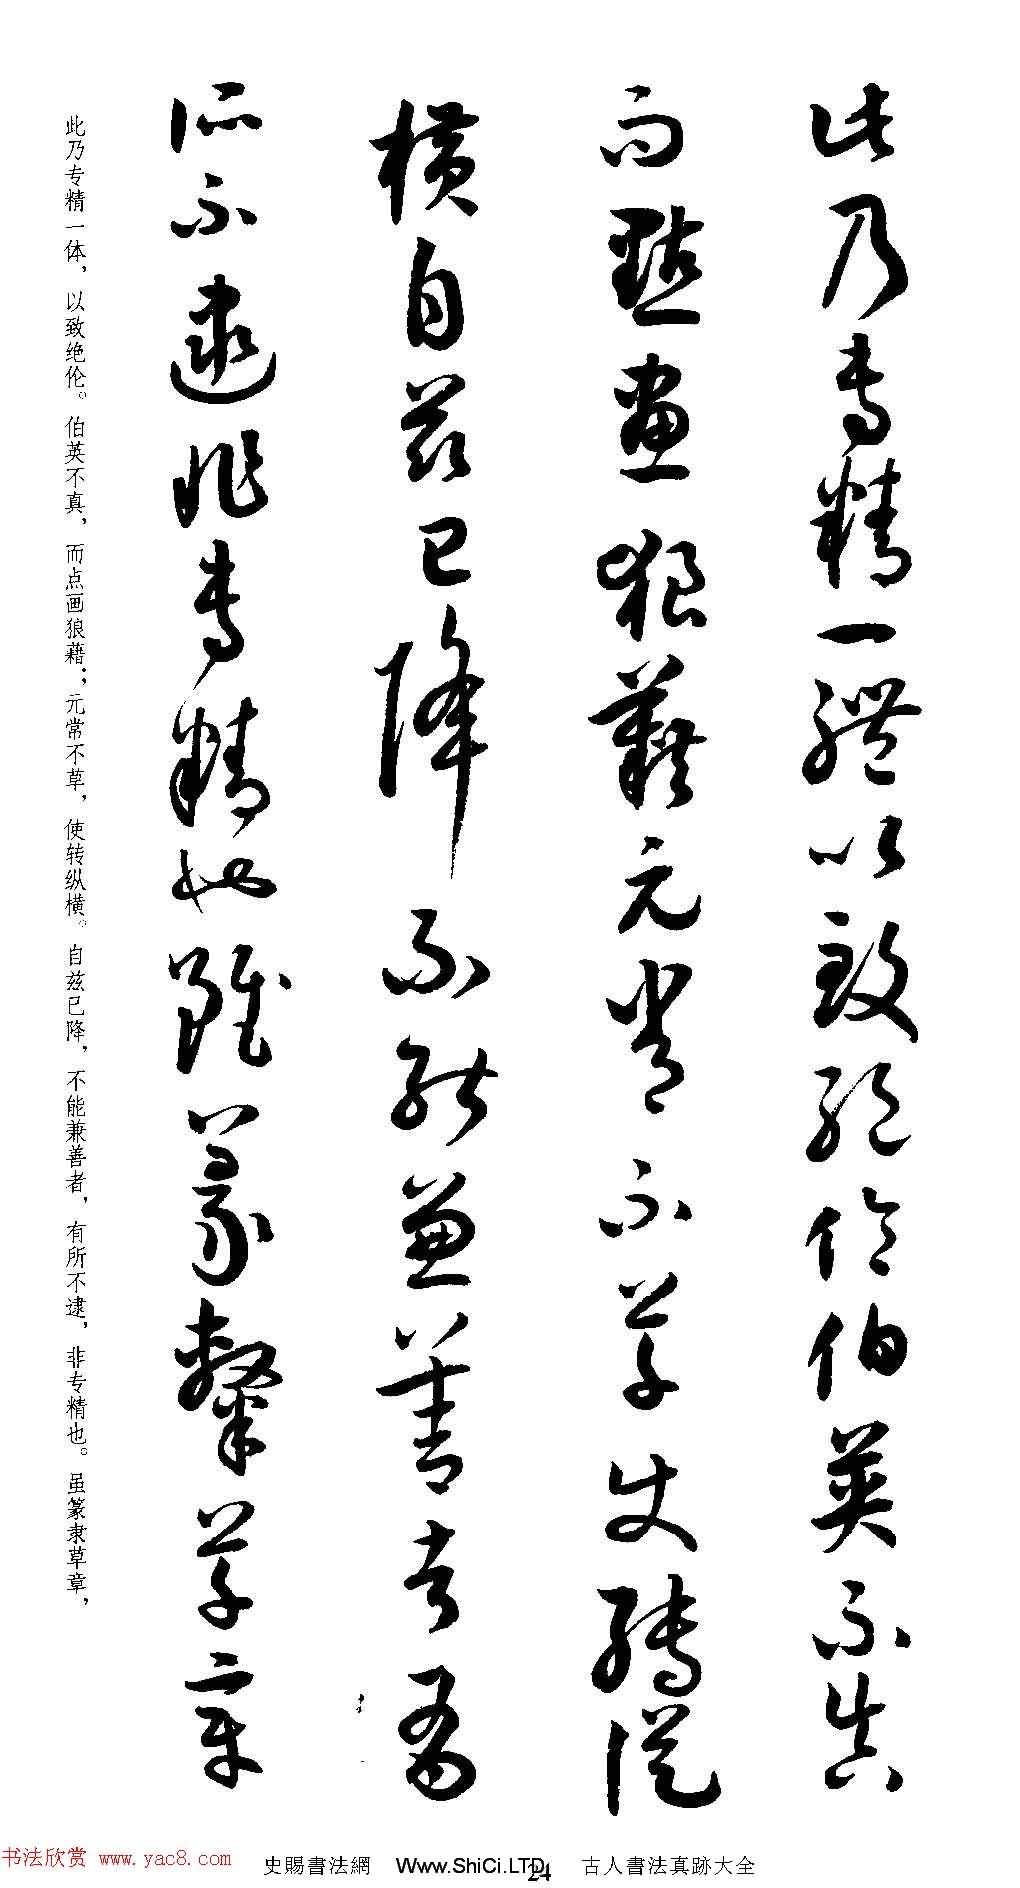 此乃专精一體以致絕倫伯英不真
而點畫狼藉元常不草使轉從
橫自茲已降不能兼善者有
所不逮非专精也雖篆隸草章
此乃专精一体，以致绝伦。伯英不真，而点画狼藉；元常不草，使转纵横。自兹已降，不能兼善者，有所不逮，非专精也。虽篆隶草章，
书法欣赏 www.yac8.com 史賜書法網 Www.ShiCi.LTD 24 古人書法真跡大全